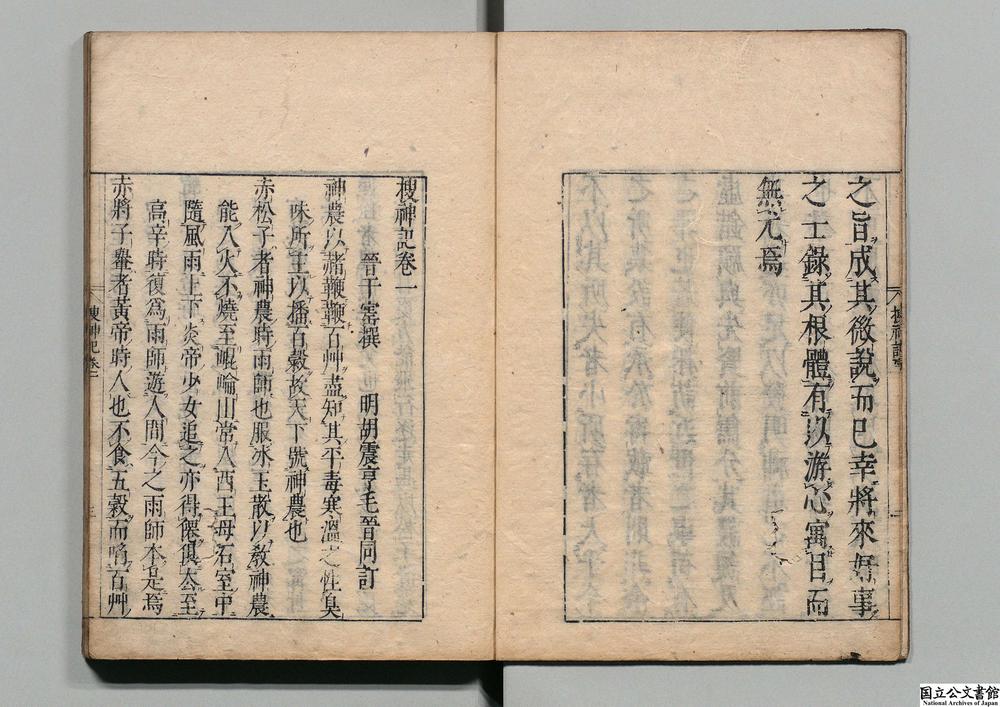 之旨成其微說而已幸將來好事
之士錄其根體有以游心寓目而
無尤焉
搜神記卷一
晉干寳撰 明胡震亨毛晉同訂
神農以赭鞭鞭百艸盡知其平毒寒溫之性臭
味所主以播百穀故天下號神農也
赤松子者神農時雨師也服冰玉散以敎神農
能入火不燒至崐崘山常入西王母石室中
隨風雨上下炎帝少女追之亦得僊俱去至
高辛時復爲雨師遊人間今之雨師本是焉
赤將子轝者黃帝時人也不食五穀而啗百艸
搜神記卷一
三
国立公文書館
National Archives of Japan